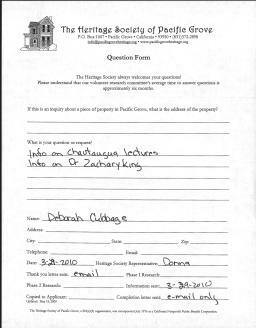 The Heritage Society of Pacific Grove
P.O. Box 1007 • Pacific Grove • California • 93950 • (831) 372-2898
info@pacificgroveheritage.org • www.pacificgroveheritage.org
Question Form
The Heritage Society always welcomes your questions!
Please understand that our volunteer research committee's average time to answer questions is
approximately six months.
If this is an inquiry about a piece of property in Pacific Grove, what is the address of the property?
What is your question or request?
Info on Chautauqua lectures
Info on Dr Zachary King
Name: Deborah Cubbage
Address:
City: State: Zip:
Telephone: Email:
Date: 3-28-2010 Heritage Society Representative: Donna
Thank you letter sent: email Phase 1 Research:
Phase 2 Research: Information sent: 3-28-2010
Copied to Applicant: Completion letter sent: e-mail only